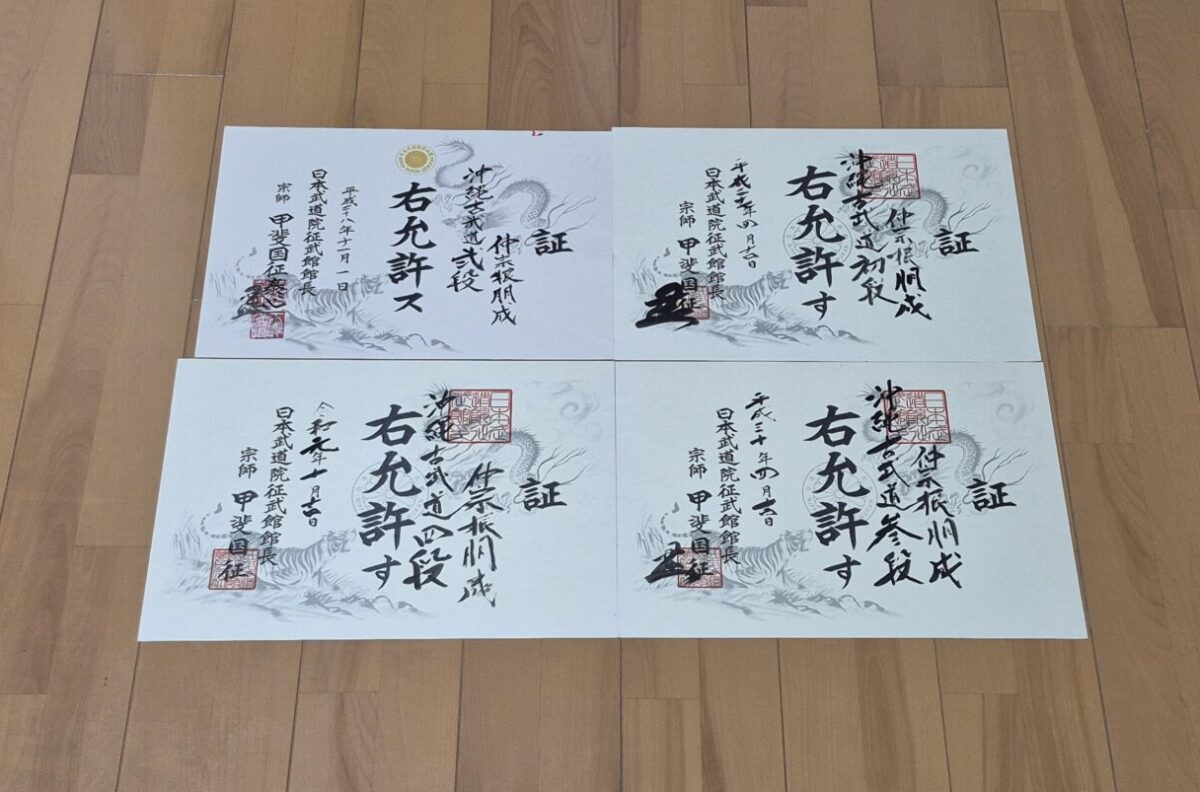 証
仲宗根朋成
沖縄古武道弐段
右允許ス
平成二十八年十一月一日
日本武道院征武館館長
宗師 甲斐国征泰心
証
仲宗根朋成
沖縄古武道初段
右允許す
平成 年四月 日
日本武道院征武館館長
宗師 甲斐国征
証
仲宗根朋成
沖縄古武道四段
右允許す
令和元年十月 日
日本武道院征武館館長
宗師 甲斐国征
証
仲宗根朋成
沖縄古武道参段
右允許す
平成三十年四月 日
日本武道院征武館館長
宗師 甲斐国征